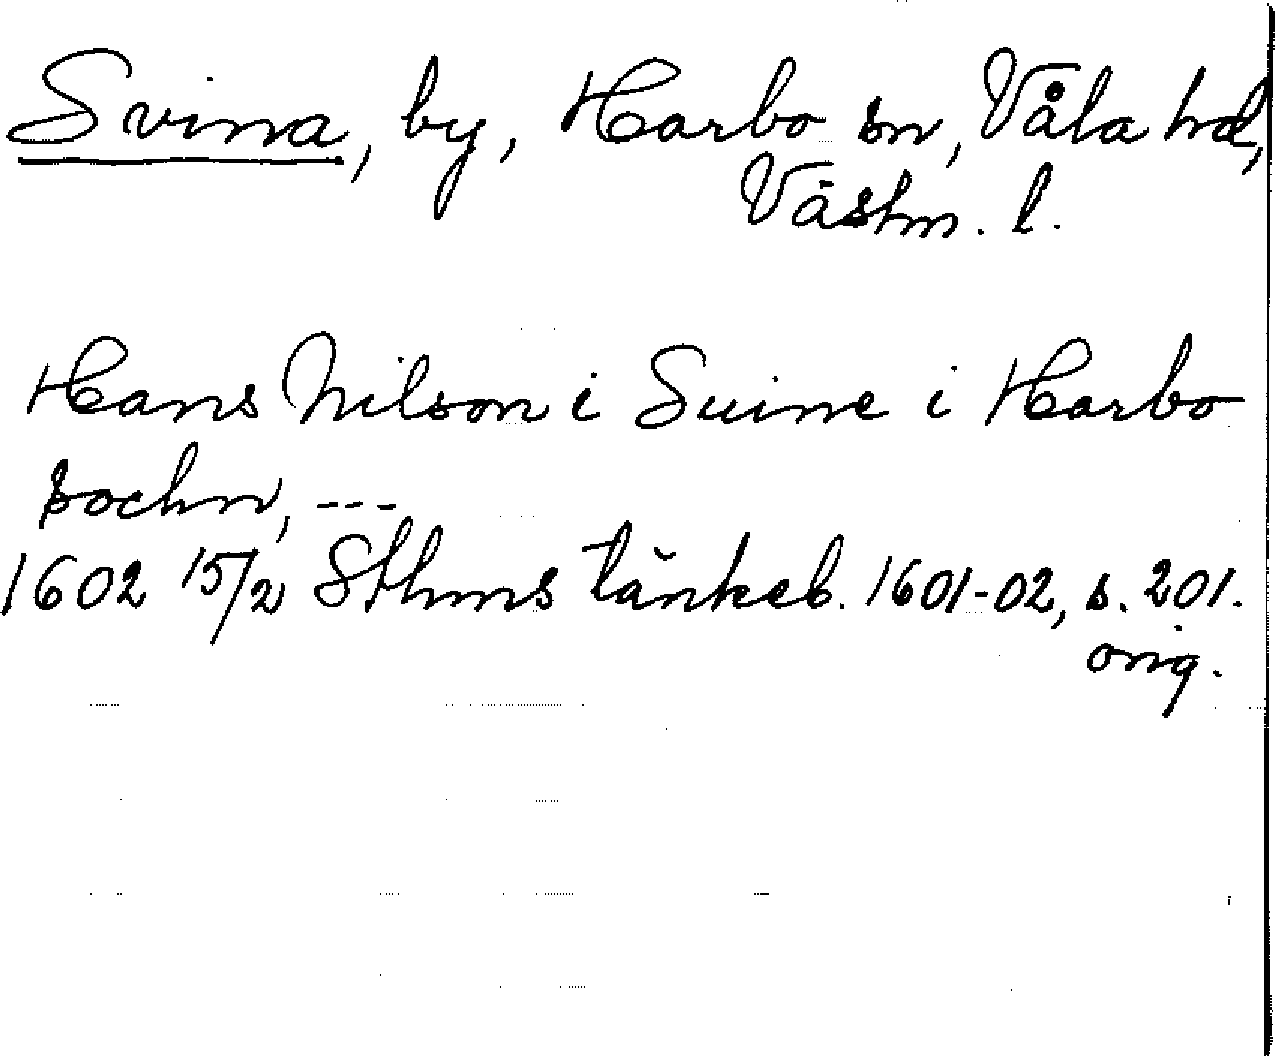 Svina, by, Harbo sn, Våla hd,
Västm. l.
Hans Nilson i Suine i Harbo
sochn, ---
1602 15/2 Sthms tänkeb. 1601-02, s. 201.
orig.